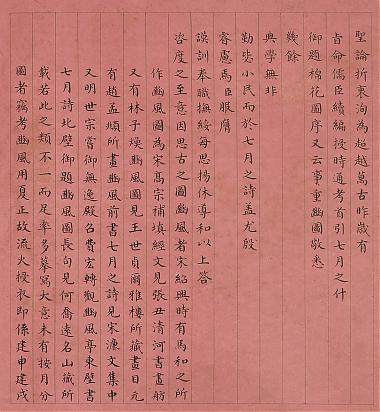 聖論折衷洵為超越萬古昨歲有
旨命儒臣續編授時通考首引七月之什
御題棉花圖序又云事重豳圖敬悉
幾餘
典學無非
勤毖小民而於七月之詩蓋尤殷
睿慮焉臣服膺
謨訓奉職撫綏每思揚休導和以上答
咨度之至意因思古之圖豳風者宋紹興時有馬和之所
作豳風圖為宋高宗補填經文見張丑清河書畫舫
又有林子煥豳風圖見王世貞爾雅樓所藏畫目元
有趙孟頫所畫豳風前書七月之詩見宋濂文集中
又明世宗嘗御無逸殿召費宏轉觀豳風亭東壁書
七月詩北壁御題豳風圖長句見何喬遠名山藏所
載若此之類不一而足率多摹寫大意未有按月分
圖者竊考豳風用夏正故流火授衣即係建申建戌